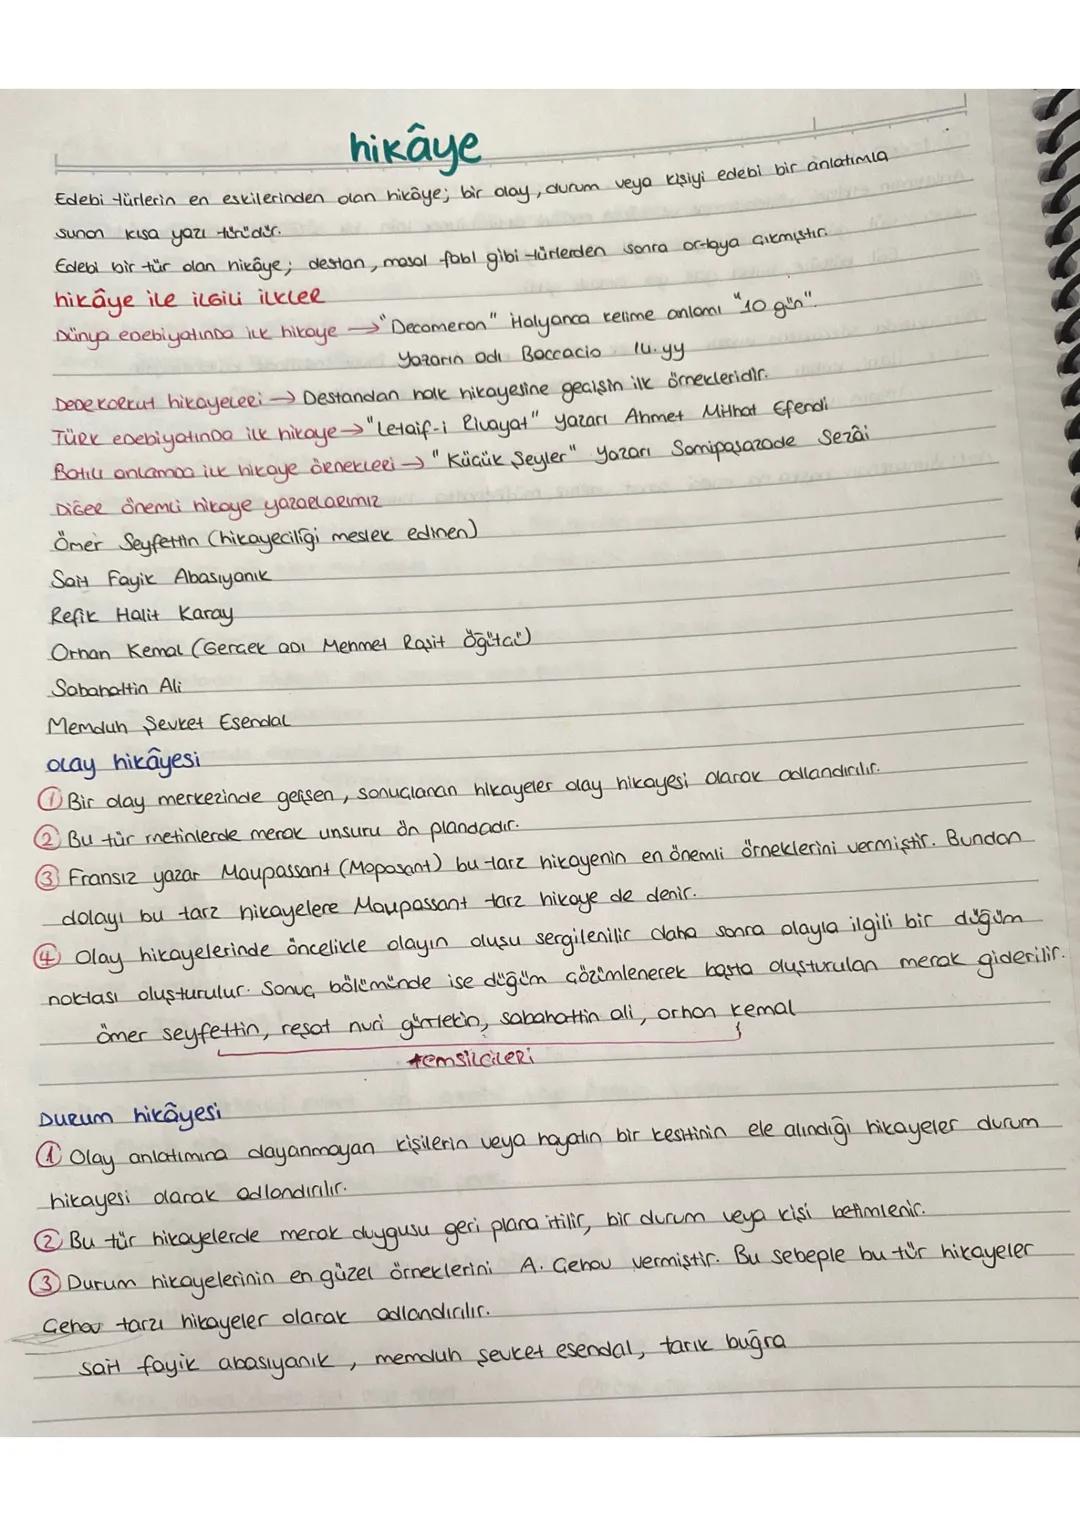 hikâye
Edebi türlerin en eskilerinden olan hikâye; bir olay, durum veya kişiyi edebi bir anlatımla
sunan kısa yazı türüdür.
Edebi bir tür olan hikâye; destan, masal fabl gibi türlerden sonra ortaya çıkmıştır.
hikâye ile ilgili ilkler
Dünya edebiyatında ilk hikaye → "Decameron" İtalyanca kelime anlamı "10 gün".
Yazarın adı Boccacio 14. yy
Dede korkut hikayeleri → Destandan halk hikayesine geçişin ilk örnekleridir.
Türk edebiyatında ilk hikaye → "Letaif-i Rivayat" yazarı Ahmet Mithat Efendi
Batılı anlamda ilk hikaye örnekleri → "Küçük Şeyler" Yazarı Samipaşazade Sezâi
Diğer önemli hikaye yazarlarımız
Ömer Seyfettin (hikayeciliği meslek edinen)
Sait Fayik Abasıyanık
Refik Halit Karay
Orhan Kemal (Gerçek adı Mehmet Raşit Öğütçü)
Sabahattin Ali
Memduh Şevket Esendal
olay hikâyesi
① Bir olay merkezinde gelişen, sonuçlanan hikayeler olay hikayesi olarak adlandırılır.
② Bu tür metinlerde merak unsuru ön plandadır.
③ Fransız yazar Maupassant (Mopasant) bu tarz hikayenin en önemli örneklerini vermiştir. Bundan
dolayı bu tarz hikayelere Maupassant tarz hikaye de denir.
④ Olay hikayelerinde öncelikle olayın oluşu sergilenilir daha sonra olayla ilgili bir düğüm
noktası oluşturulur. Sonuç bölümünde ise düğüm çözümlenerek başta oluşturulan merak giderilir.
ömer seyfettin, reşat nuri güntekin, sabahattin ali, orhan kemal
temsilcileri
Durum hikâyesi
① Olay anlatımına dayanmayan kişilerin veya hayatın bir kesitinin ele alındığı hikayeler durum
hikayesi olarak adlandırılır.
② Bu tür hikayelerde merak duygusu geri plana itilir, bir durum veya kişi betimlenir.
③ Durum hikayelerinin en güzel örneklerini A. Çehov vermiştir. Bu sebeple bu tür hikayeler
Çehov tarzı hikayeler olarak adlandırılır.
sait fayik abasıyanık, memduh şevket esendal, tarık buğra